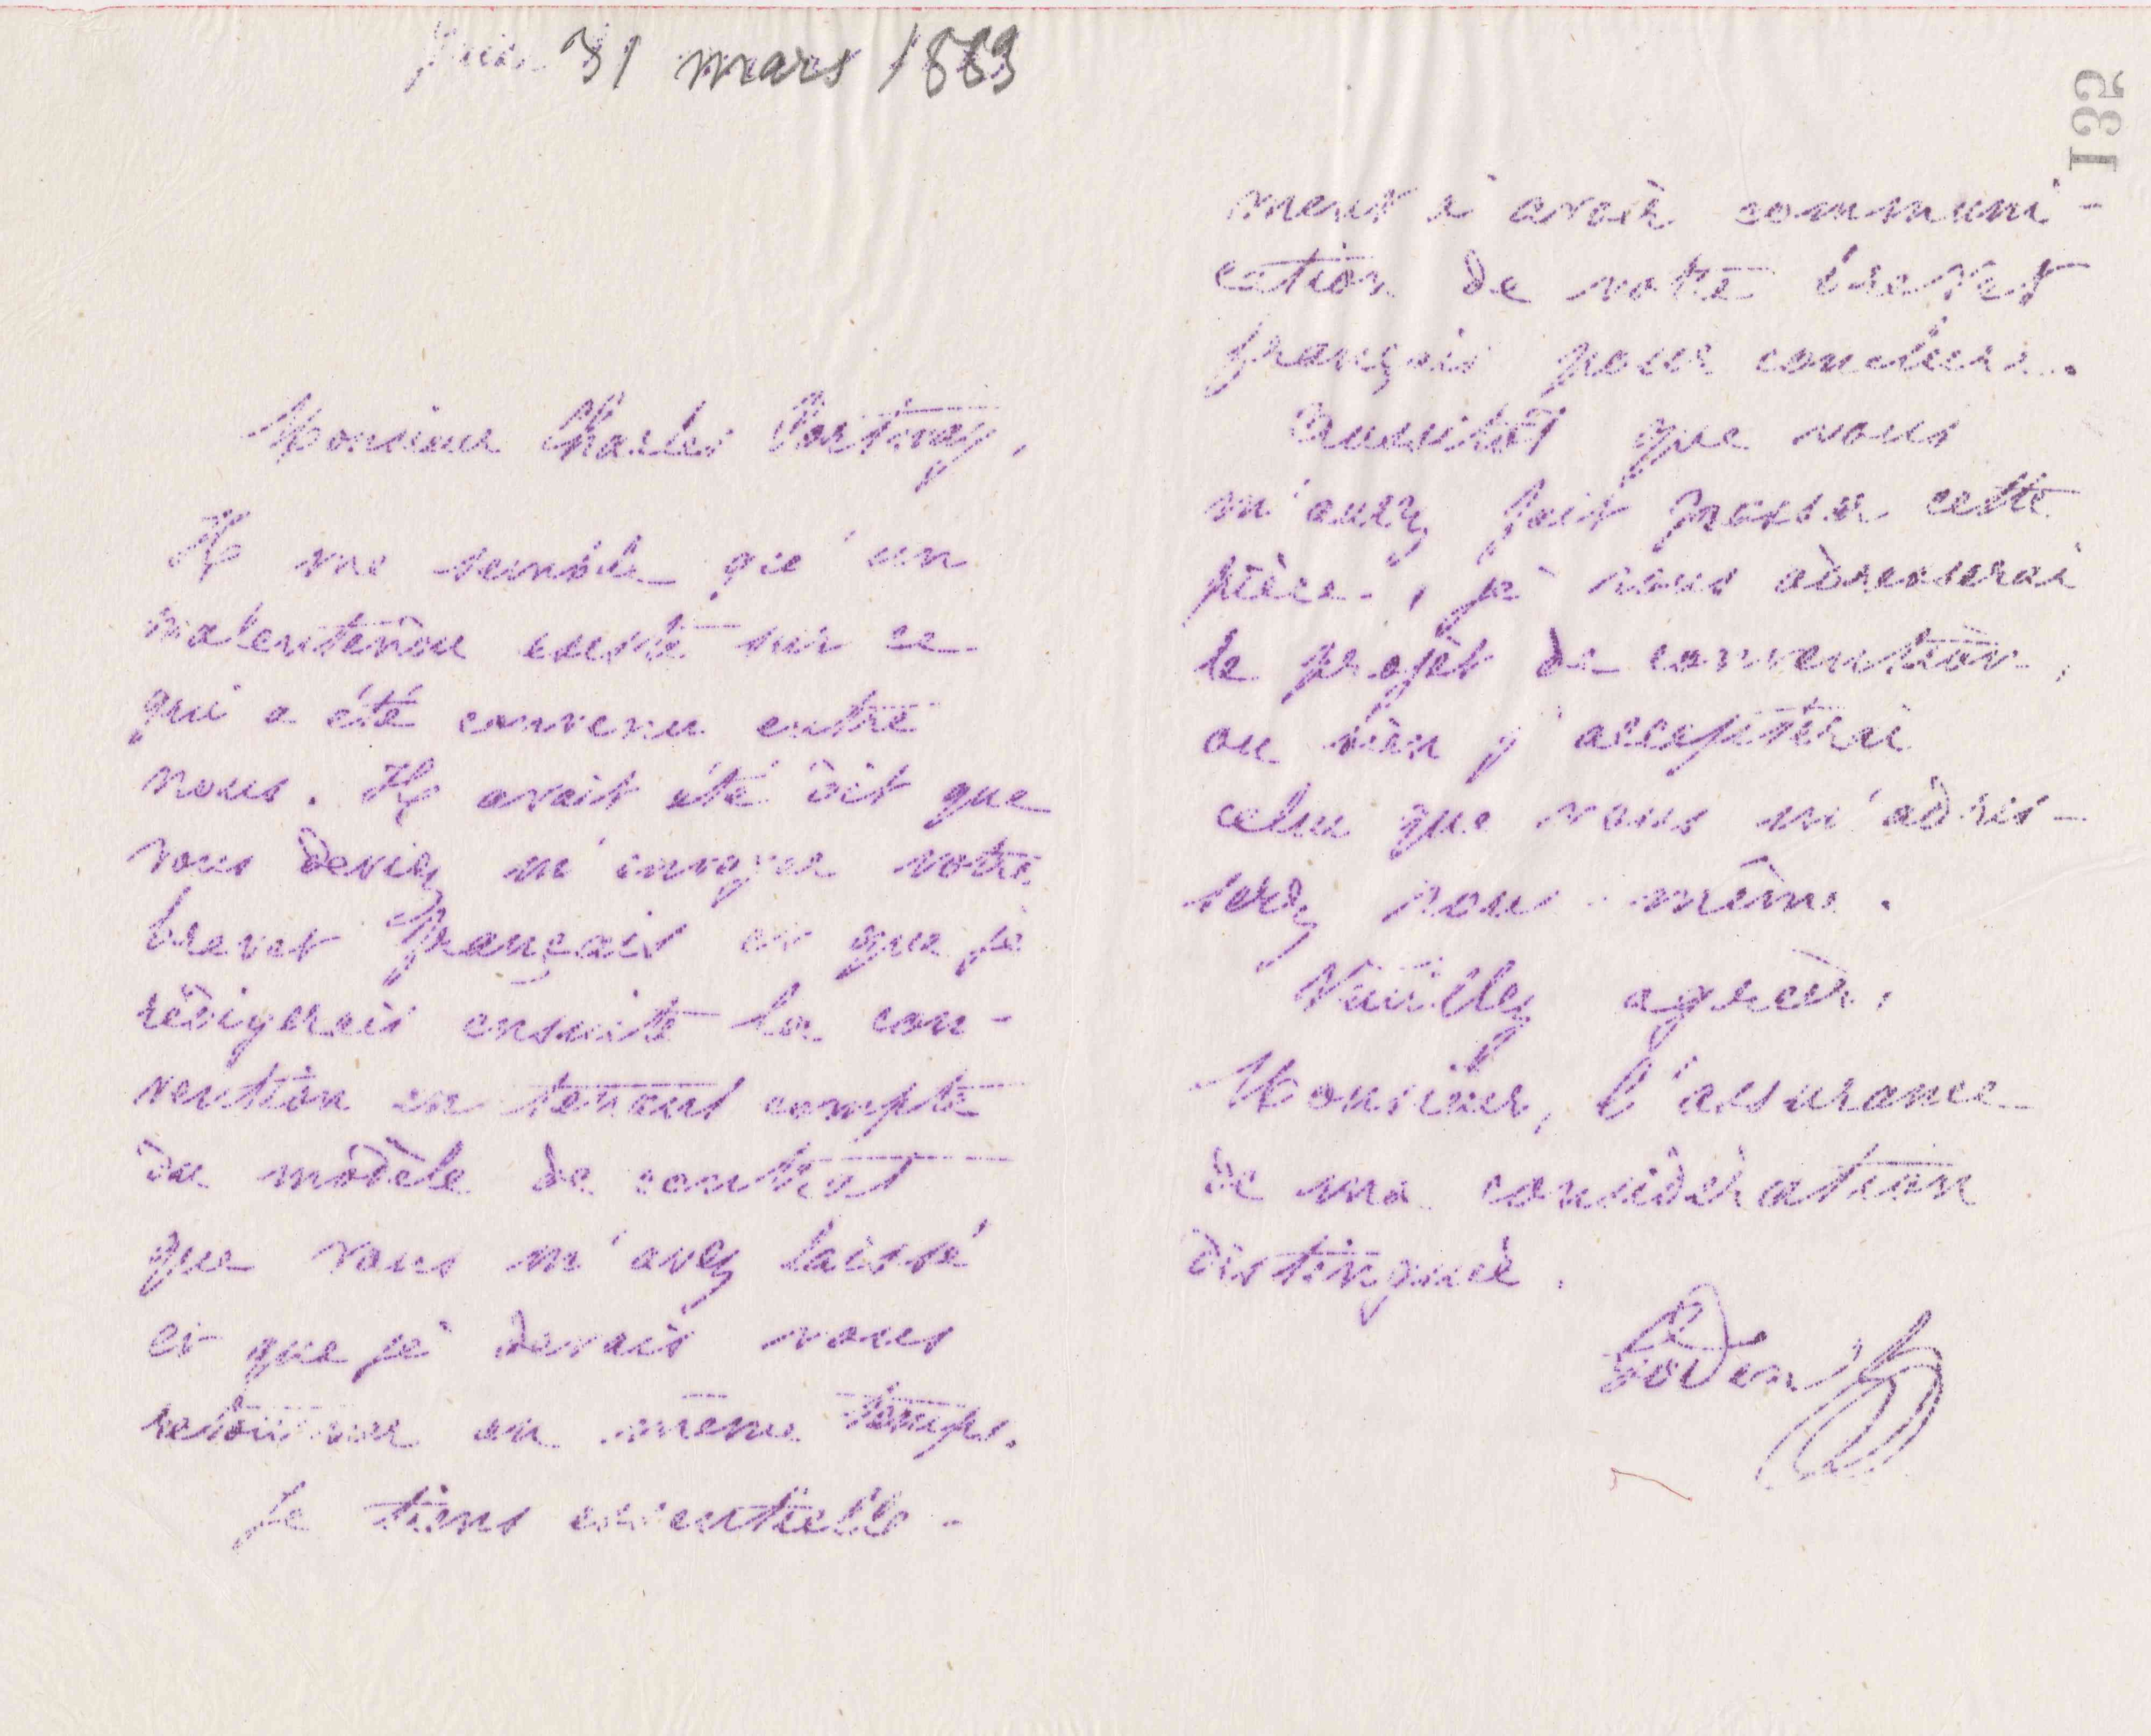 31 mars 1883
Monsieur Charles
Il me semble qu'un
malentendu existe sur ce
qui a été convenu entre
nous. Il avait été dit que
vous deviez m'envoyer votre
brevet français et que je
rédigerais ensuite la con-
vention en tenant compte
du modèle de contrat
que vous m'avez laissé
et que je devais vous
retourner en même temps.
Je tiens essentielle-
135
ment à avoir communi-
cation de votre brevet
français pour conclure.
Aussitôt que vous
m'aurez fait passer cette
pièce, je vous adresserai
le projet de convention,
ou bien j'accepterai
celui que vous m'adres-
serez vous-même.
Veuillez agréer,
Monsieur, l'assurance
de ma considération
distinguée.
Godin